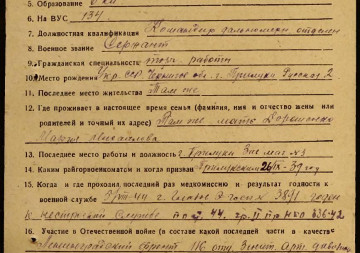 5. Образование 6 кл
6. На ВУС 134
7. Должностная квалификация Командир дальномерн. отделен
8. Военное звание Сержант
9. Гражданская специальность
10. Место рождения Укр. ССР, Черниговс. обл. г. Прилуки,
11. Последнее место жительства Там же
12. Где проживает в настоящее время семья (фамилия, имя и отчество жены или
родителей и точный их адрес) Там же, мать
13. Последнее место работы и должность г. Прилуки
14. Каким райгорвоенкоматом и когда призван Прилукским 26/IX-39 году
15. Когда и где проходил последний раз медкомиссию и результат годности к
военной службе 44 г. 3891 годен
к нестроевой службе 44. гр. II пр. НКО 336-42
16. Участие в Отечественной войне (в составе какой последней части и в качестве
Ленинградский фронт 116 отд. Зенит. Арт. дивизион